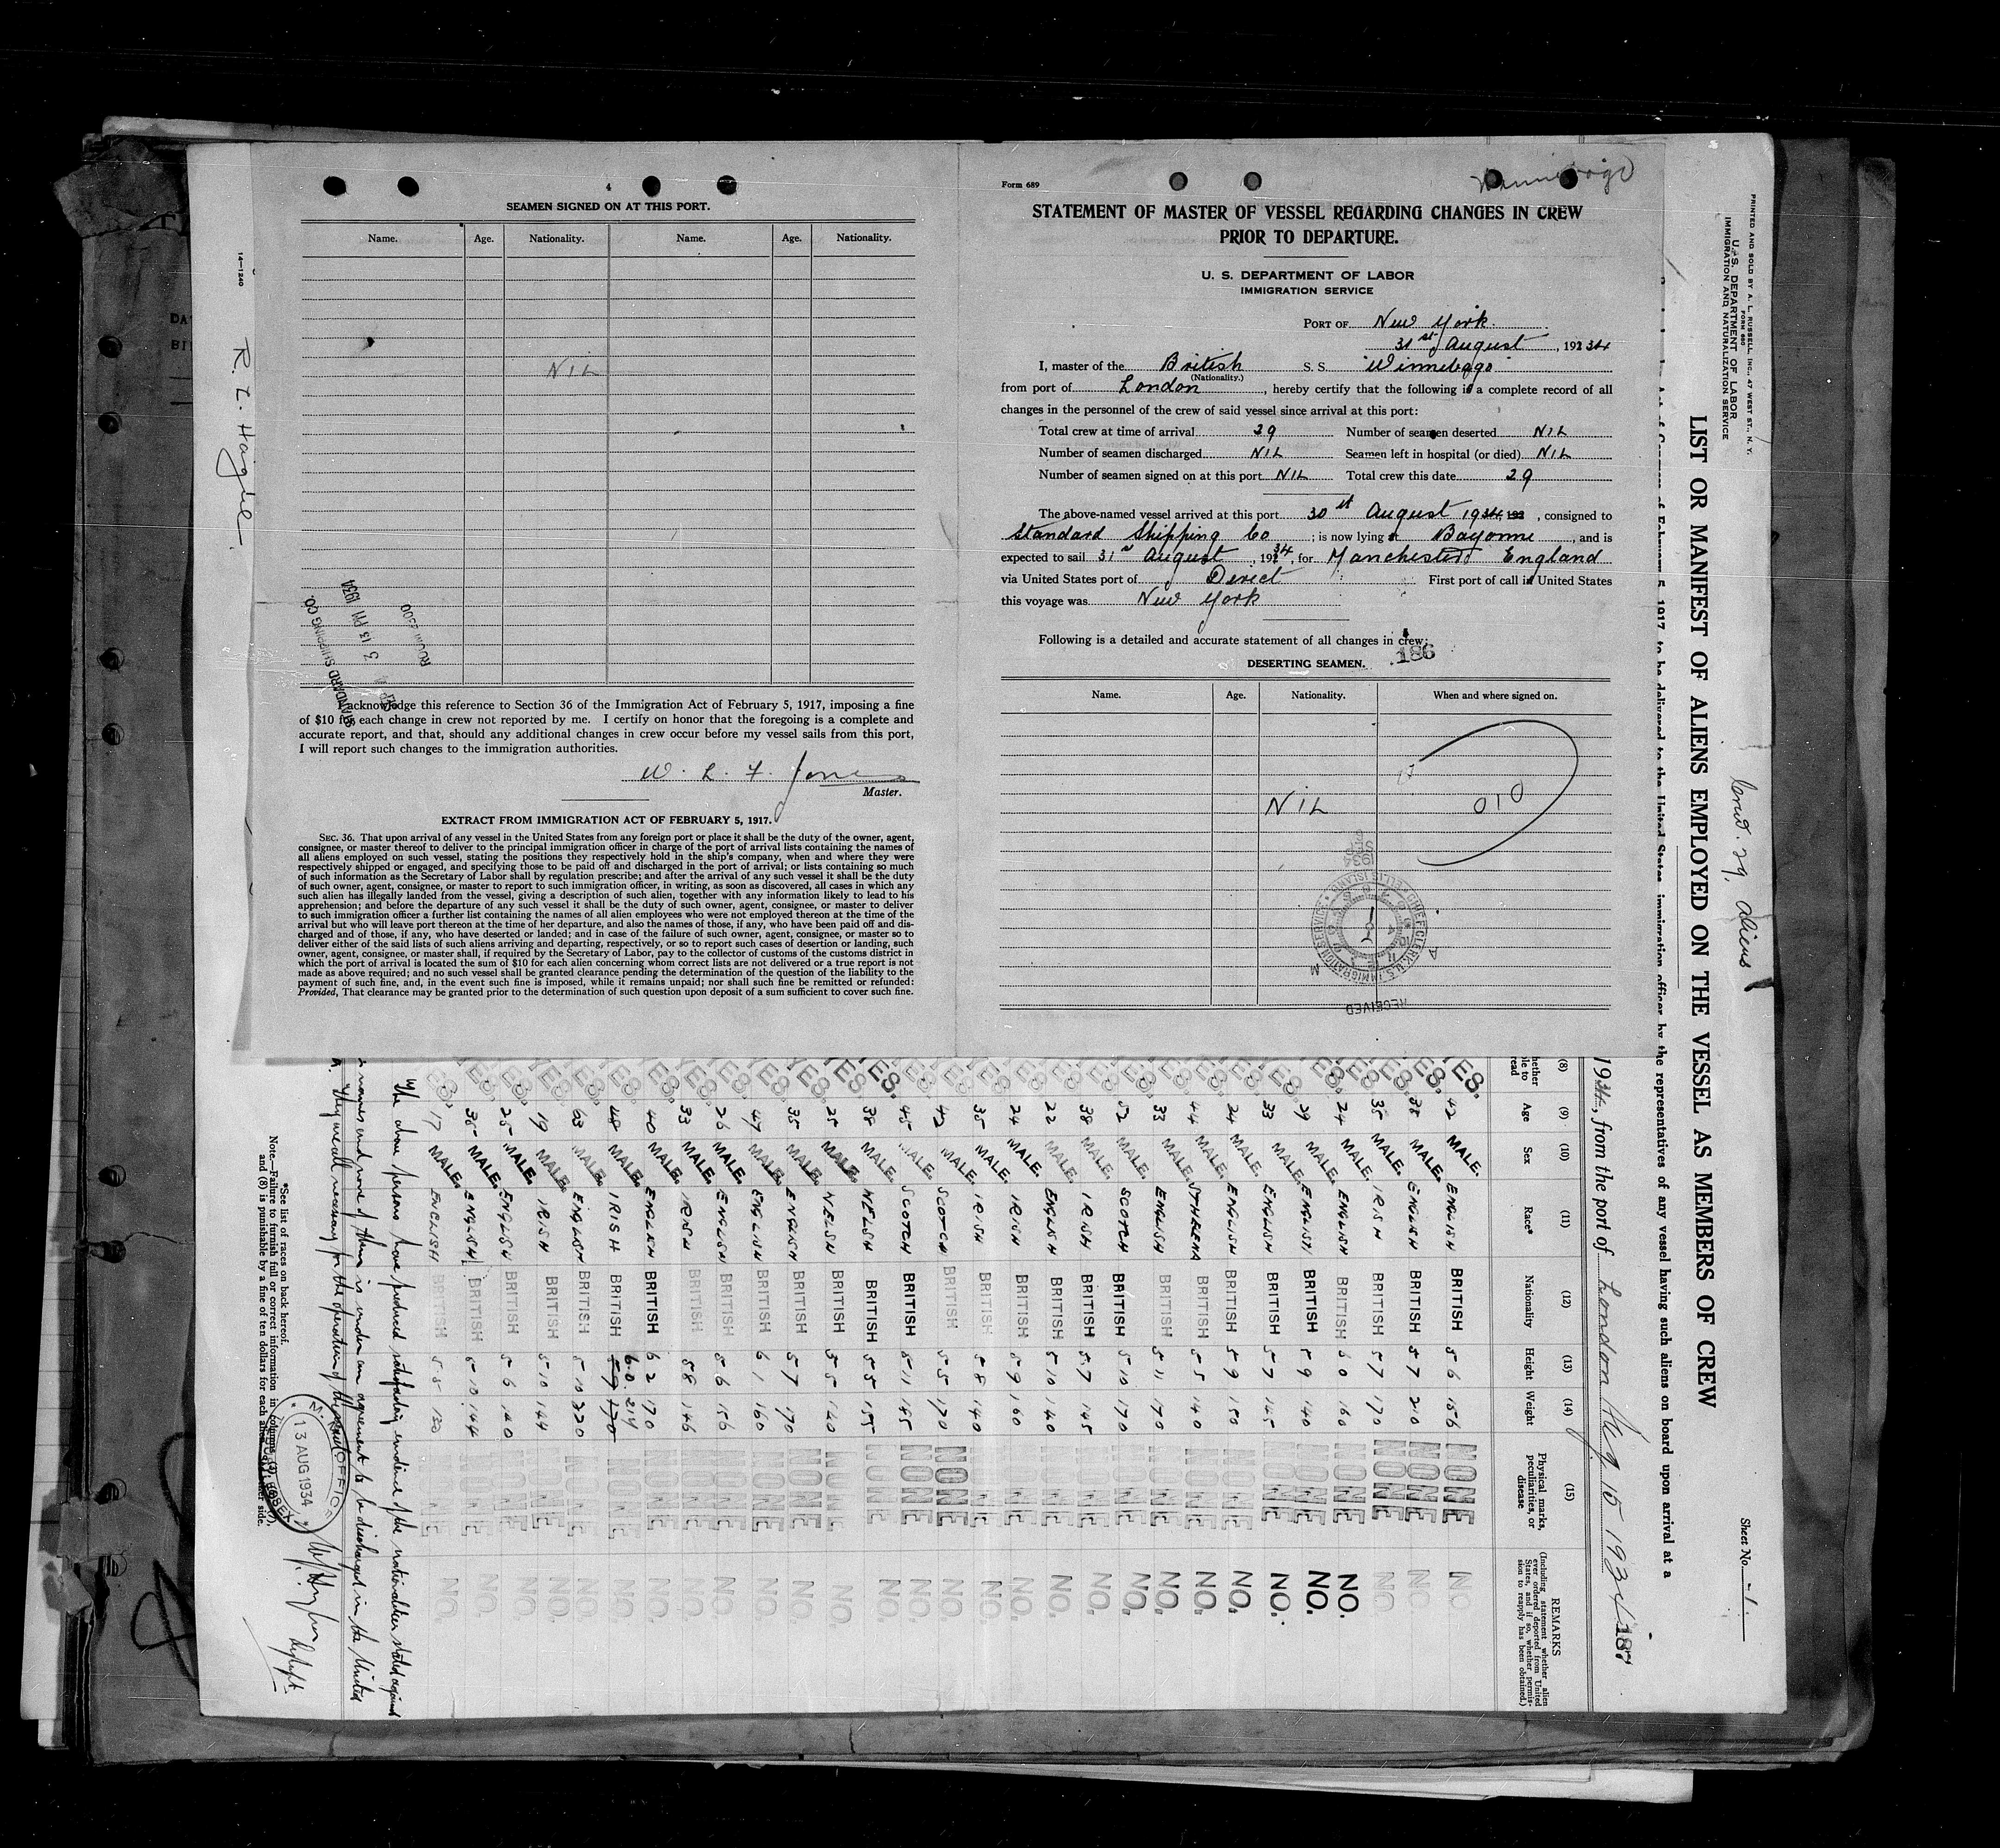 4
SEAMEN SIGNED ON AT THIS PORT.
Name. Age. Nationality. Name. Age. Nationality.
NIL
STANDARD SHIPPING CO.
3 13 PM 1934
ROOM 2300
I acknowledge this reference to Section 36 of the Immigration Act of February 5, 1917, imposing a fine
of $10 for each change in crew not reported by me. I certify on honor that the foregoing is a complete and
accurate report, and that, should any additional changes in crew occur before my vessel sails from this port,
I will report such changes to the immigration authorities.
W. L. F. Jones
Master.
EXTRACT FROM IMMIGRATION ACT OF FEBRUARY 5, 1917.
SEC. 36. That upon arrival of any vessel in the United States from any foreign port or place it shall be the duty of the owner, agent,
consignee, or master thereof to deliver to the principal immigration officer in charge of the port of arrival lists containing the names of
all aliens employed on such vessel, stating the positions they respectively hold in the ship's company, when and where they were
respectively shipped or engaged, and specifying those to be paid off and discharged in the port of arrival; or lists containing so much
of such information as the Secretary of Labor shall by regulation prescribe; and after the arrival of any such vessel it shall be the duty
of such owner, agent, consignee, or master to report to such immigration officer, in writing, as soon as discovered, all cases in which any
such alien has illegally landed from the vessel, giving a description of such alien, together with any information likely to lead to his
apprehension; and before the departure of any such vessel it shall be the duty of such owner, agent, consignee, or master to deliver
to such immigration officer a further list containing the names of all alien employees who were not employed thereon at the time of the
arrival but who will leave port thereon at the time of her departure, and also the names of those, if any, who have been paid off and dis-
charged and of those, if any, who have deserted or landed; and in case of the failure of such owner, agent, consignee, or master so to
deliver either of the said lists of such aliens arriving and departing, respectively, or so to report such cases of desertion or landing, such
owner, agent, consignee, or master shall, if required by the Secretary of Labor, pay to the collector of customs of the customs district in
which the port of arrival is located the sum of $10 for each alien concerning whom correct lists are not delivered or a true report is not
made as above required; and no such vessel shall be granted clearance pending the determination of the question of the liability to the
payment of such fine, and, in the event such fine is imposed, while it remains unpaid; nor shall such fine be remitted or refunded:
Provided, That clearance may be granted prior to the determination of such question upon deposit of a sum sufficient to cover such fine.
14-1240
Form 689
Winnebago
STATEMENT OF MASTER OF VESSEL REGARDING CHANGES IN CREW
PRIOR TO DEPARTURE.
U. S. DEPARTMENT OF LABOR
IMMIGRATION SERVICE
PORT OF New York.
31st August, 19234
I, master of the British S. S. "Winnebago"
(Nationality.)
from port of London, hereby certify that the following is a complete record of all
changes in the personnel of the crew of said vessel since arrival at this port:
Total crew at time of arrival 29 Number of seamen deserted NIL
Number of seamen discharged NIL Seamen left in hospital (or died) NIL
Number of seamen signed on at this port NIL Total crew this date 29
The above-named vessel arrived at this port 30st August 1934, consigned to
Standard Shipping Co; is now lying at Bayonne, and is
expected to sail 31st August, 19234, for Manchester England
via United States port of Direct First port of call in United States
this voyage was New York
Following is a detailed and accurate statement of all changes in crew:
186
DESERTING SEAMEN.
Name. Age. Nationality. When and where signed on.
NIL
010
RECEIVED
PRINTED AND SOLD BY A. L. RUSSELL, INC., 47 WEST ST., N. Y.
FORM 680
U. S. DEPARTMENT OF LABOR
IMMIGRATION AND NATURALIZATION SERVICE
Sheet No. 1.
LIST OR MANIFEST OF ALIENS EMPLOYED ON THE VESSEL AS MEMBERS OF CREW
Act of Congress of February 5, 1917, to be delivered to the United States immigration officer by the representatives of any vessel having such aliens on board upon arrival at a
29, aliens
1934, from the port of London Aug 15 1934
(8) (9) (10) (11) (12) (13) (14) (15)
Age Sex Race* Nationality Height Weight Physical marks, peculiarities, or disease REMARKS
(Including statement whether alien ever ordered deported from United States, and if so, whether permission to reapply has been obtained.)
YES. 42 MALE. ENGLISH BRITISH 5 6 156 NONE NO.
YES. 38 MALE. ENGLISH BRITISH 5 7 210 NONE NO.
YES. 35 MALE. IRISH BRITISH 5 7 170 NONE NO.
YES. 24 MALE. ENGLISH BRITISH 6 0 160 NONE NO.
YES. 29 MALE. ENGLISH BRITISH 5 9 140 NONE NO.
YES. 33 MALE. ENGLISH BRITISH 5 7 145 NONE NO.
YES. 24 MALE. ENGLISH BRITISH 5 9 150 NONE NO.
YES. 44 MALE. STHRENA BRITISH 5 5 140 NONE NO.
YES. 33 MALE. ENGLISH BRITISH 5 11 170 NONE NO.
YES. 52 MALE. SCOTCH BRITISH 5 10 170 NONE NO.
YES. 38 MALE. IRISH BRITISH 5 7 145 NONE NO.
YES. 22 MALE. ENGLISH BRITISH 5 10 140 NONE NO.
YES. 24 MALE. IRISH BRITISH 5 9 160 NONE NO.
YES. 35 MALE. IRISH BRITISH 5 8 140 NONE NO.
YES. 42 MALE. SCOTCH BRITISH 5 5 170 NONE NO.
YES. 45 MALE. SCOTCH BRITISH 5 11 185 NONE NO.
YES. 38 MALE. WELSH BRITISH 5 5 155 NONE NO.
YES. 25 MALE. WELSH BRITISH 5 5 140 NONE
YES. 35 MALE. ENGLISH BRITISH 5 7 170 NONE NO.
YES. 47 MALE. ENGLISH BRITISH 6 1 160 NONE NO.
YES. 26 MALE. ENGLISH BRITISH 5 6 156 NONE NO.
YES. 33 MALE. IRISH BRITISH 5 8 146 NONE NO.
YES. 40 MALE. ENGLISH BRITISH 6 2 170 NONE NO.
YES. 48 MALE. IRISH BRITISH 6.0. 214 NONE NO.
YES. 63 MALE. ENGLISH BRITISH 5 10 220 NONE NO.
YES. 19 MALE. IRISH BRITISH 5 10 144 NONE NO.
YES. 25 MALE. ENGLISH BRITISH 5 6 140 NONE NO.
YES. 35 MALE. ENGLISH BRITISH 5 10 144 NONE NO.
YES. 17 MALE. ENGLISH BRITISH 5 5 120 NONE NO.
The above persons have produced satisfactory evidence of the nationalities stated against
names and none of them is under an agreement to be discharged in the United
They are all necessary for the operation of the
*See list of races on back hereof.
Note.—Failure to furnish full or correct information in columns
and (8) is punishable by a fine of ten dollars for each alien
13 AUG 1934